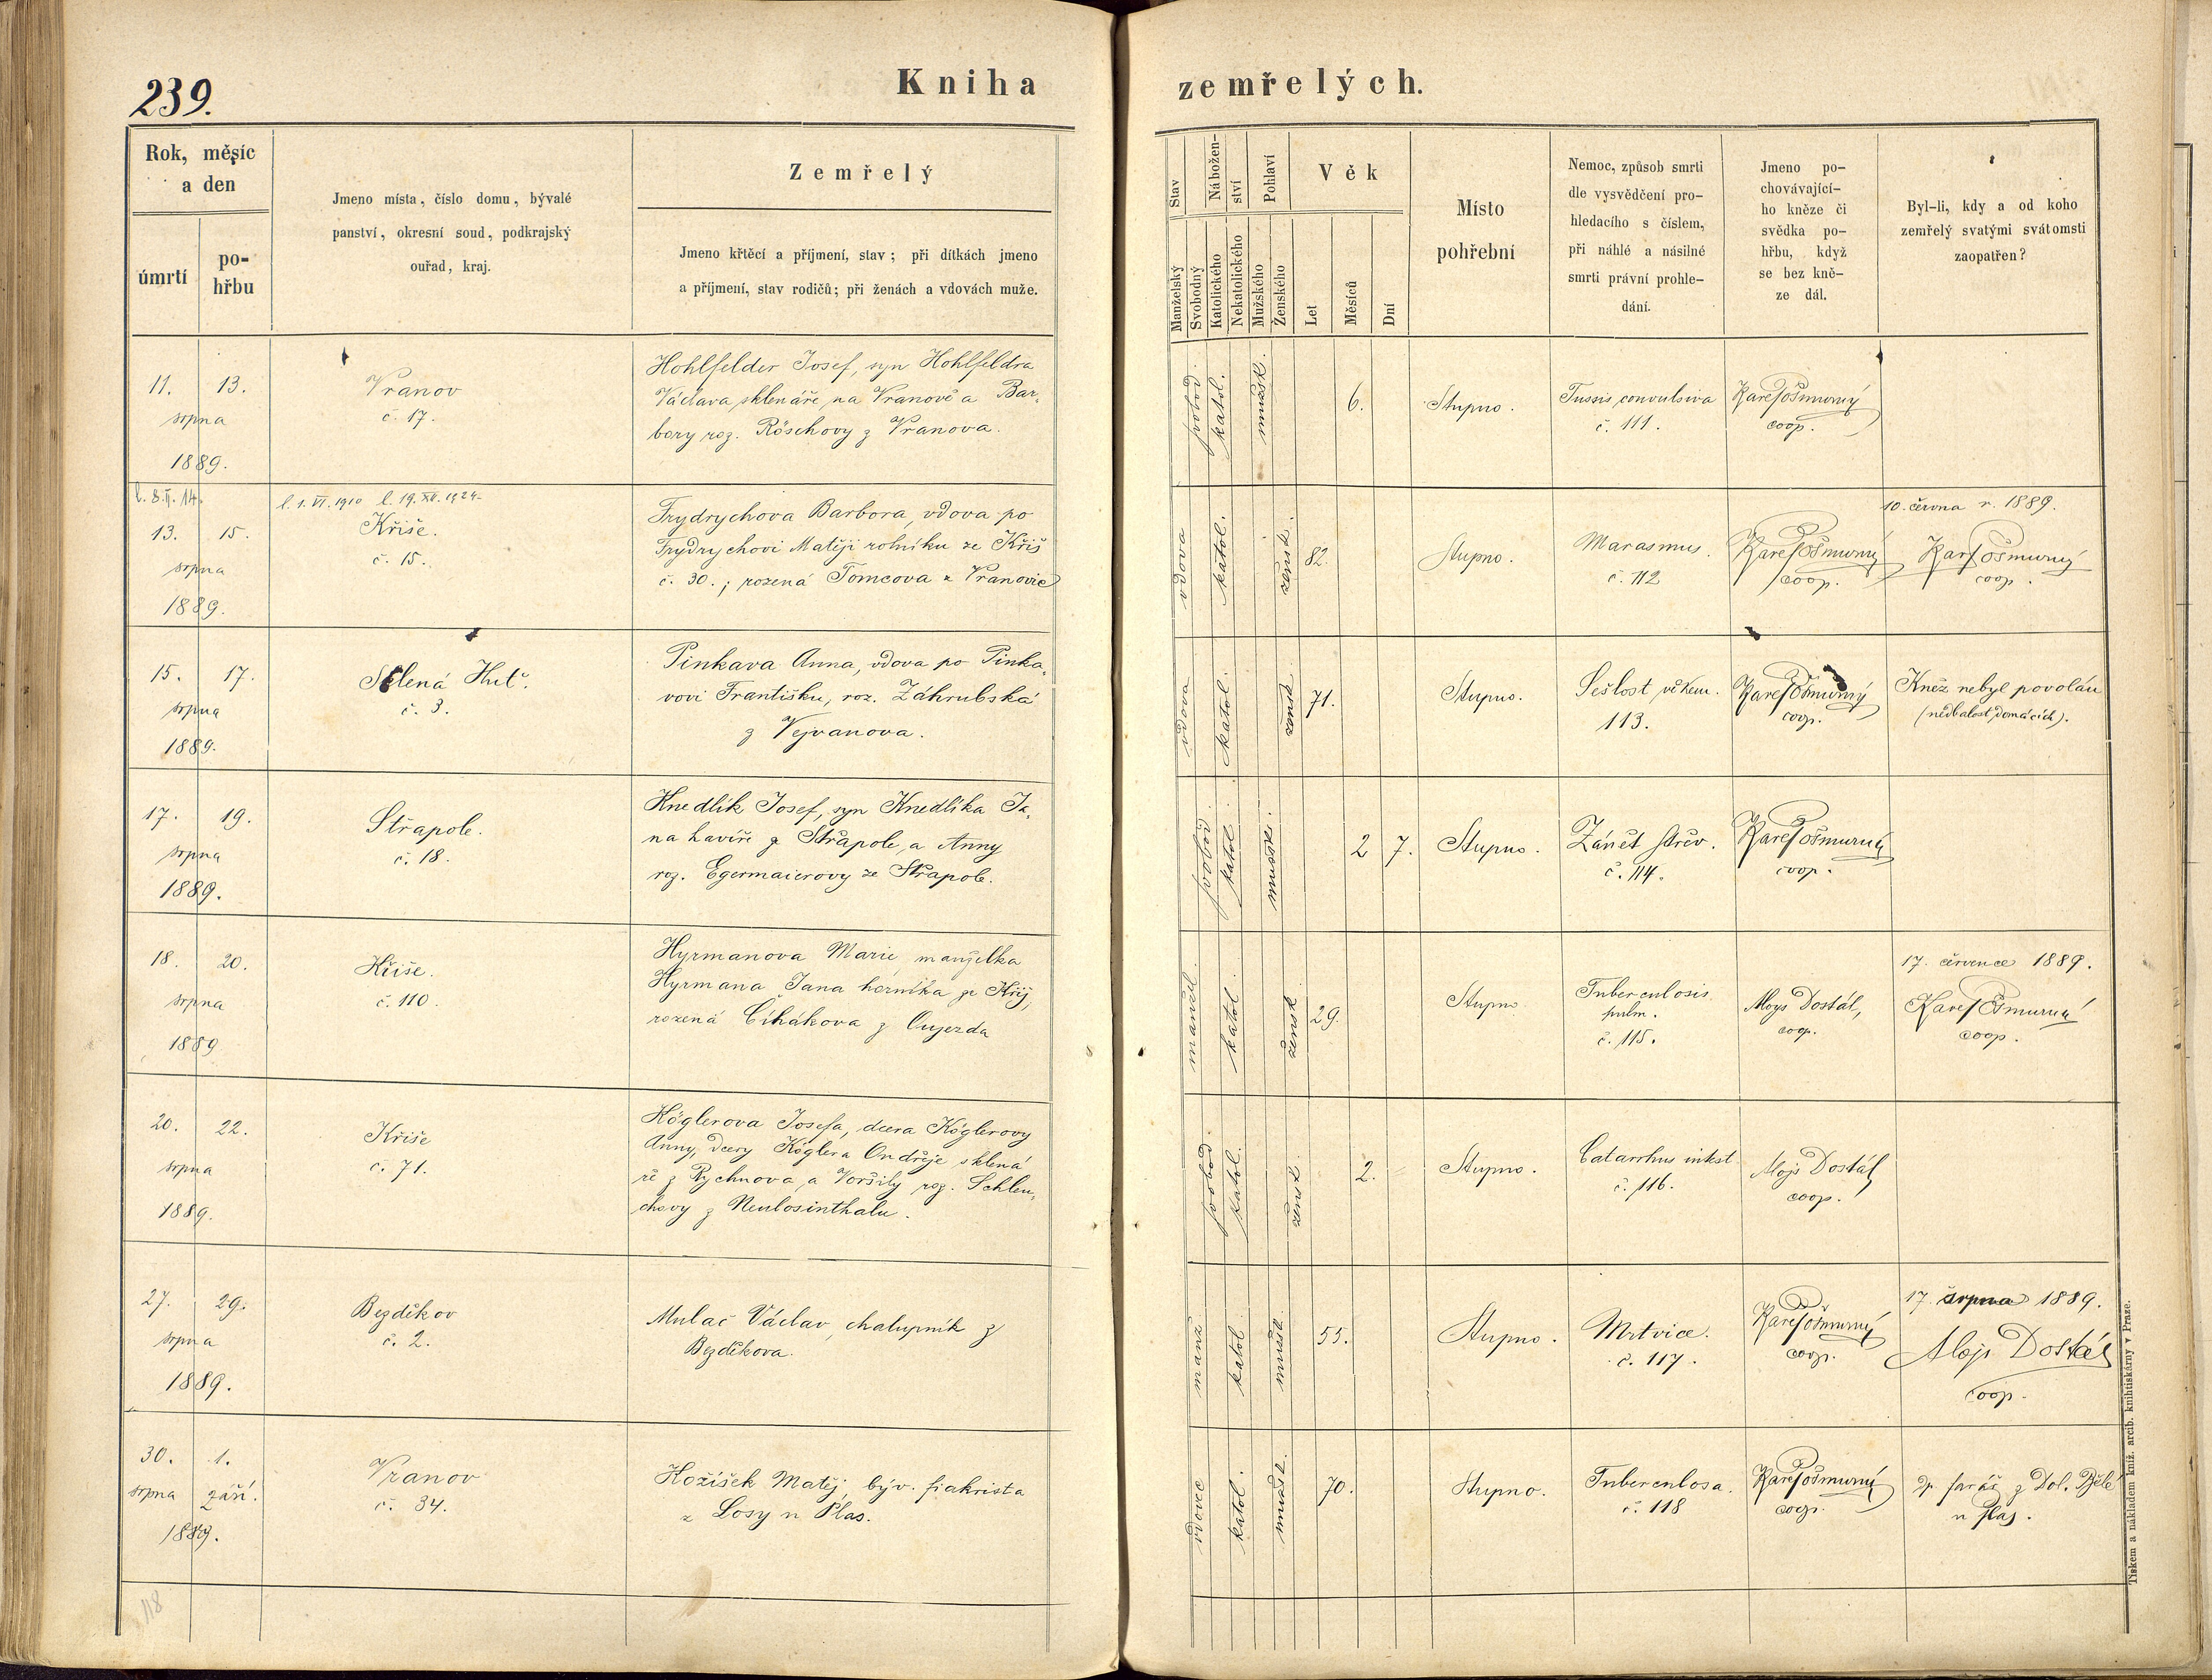 239.
Kniha zemřelých.
Rok, měsíc
a den
úmrtí
po-
hřbu
Jmeno místa, číslo domu, bývalé
panství, okresní soud, podkrajský
ouřad, kraj.
Zemřelý
Jmeno křtěcí a příjmení, stav; při dítkách jmeno
a příjmení, stav rodičů; při ženách a vdovách muže.
Stav
Manželský
Svobodný
Nábožen-
ství
Katolického
Nekatolického
Pohlaví
Mužského
Ženského
Věk
Let
Měsíců
Dní
Místo
pohřební
Nemoc, způsob smrti
dle vysvědčení pro-
hledacího s číslem,
při náhlé a násilné
smrti právní prohle-
dání.
Jmeno po-
chovávající-
ho kněze či
svědka po-
hřbu, když
se bez kně-
ze dál.
Byl-li, kdy a od koho
zemřelý svatými svátomsti
zaopatřen?
11. 13.
srpna
1889.
Vranov
č. 17.
Hohlfelder Josef, syn Hohlfeldra
Václava sklenáře na Vranově a Bar-
bory roz. Röschovy z Vranova.
svobod.
katol.
mužsk.
6.
Stupno.
Tussis convulsiva
č. 111.
Karel Ošmurný
coop.
l. 8.II. 14.
l. 1. VI. 1910 l. 19. XII. 1924
13. 15.
srpna
1889.
Kříše.
č. 15.
Frydrychova Barbora, vdova po
Frydrychovi Matěji rolníku ze Kříš
č. 30.; rozená Tomcova z Vranovic
vdova
katol.
žensk.
82.
Stupno.
Marasmus.
č. 112
Karel Ošmurný
coop.
10. června r. 1889.
Karel Ošmurný
coop.
15. 17.
srpna
1889.
Sklená Huť.
č. 3.
Pinkava Anna, vdova po Pinka-
vovi Františku, roz. Záhrubská
z Vejvanova.
vdova
katol.
žensk.
71.
Stupno.
Sešlost věkem.
113.
Karel Ošmurný
coop.
Kněz nebyl povolán
(nedbalost domácích).
17. 19.
srpna
1889.
Střapole.
č. 18.
Knedlík Josef, syn Knedlíka Ja-
na havíře z Střapole, a Anny
roz. Egermaierovy ze Střapole.
svobod.
katol.
mužsk.
2 7.
Stupno.
Zánět střev.
č. 114.
Karel Ošmurný
coop.
18. 20.
srpna
1889
Kříše.
č. 110.
Hyrmanova Marie, manželka
Hyrmana Jana horníka ze Kříš,
rozená Čihákova z Oujezda
manžel.
katol.
žensk.
29.
Stupno
Tuberculosis
pulm.
č. 115.
Aloys Dostál,
coop.
17. července 1889.
Karel Ošmurný
coop.
20. 22.
srpna
1889.
Kříše
č. 71.
Köglerova Josefa, dcera Köglerovy
Anny, dcery Köglera Ondřeje sklená-
ře z Rychnova, a Voršily roz. Schlen-
chovy z Neulosinthalu.
svobod.
katol.
žensk.
2.
Stupno.
Catarrhus intest.
č. 116.
Alojs Dostál
coop.
27. 29.
srpna
1889.
Bezděkov
č. 2.
Mulač Václav, chalupník z
Bezděkova.
manž.
katol.
mužsk.
55.
Stupno.
Mrtvice.
č. 117.
Karel Ošmurný
coop.
17. srpna 1889.
Alojs Dostál
coop.
30. 1.
srpna září.
1889.
Vranov
č. 34.
Kožíšek Matěj, býv. fiakrista
z Losy u Plas.
vdovec
katol.
mužsk.
70.
Stupno.
Tuberculosa.
č. 118
Karel Ošmurný
coop.
Dp. farář z Dol. Bělé
u Plas.
118
Tiskem a nákladem kníž. arcib. knihtiskárny v Praze.